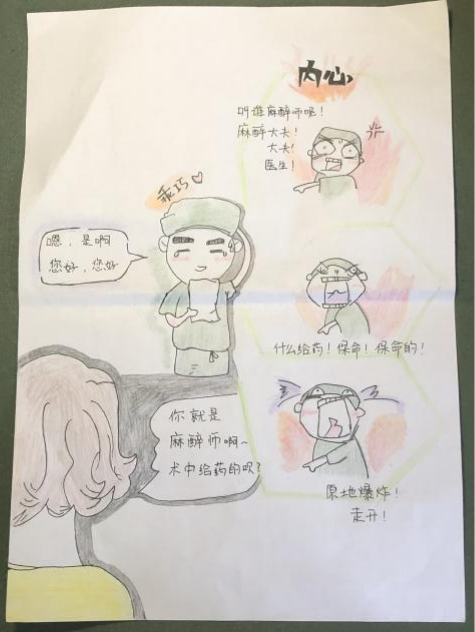 内心
叫谁麻醉师呢！
麻醉大夫！
大夫！
医生！
乖巧♡
嗯，是啊
您好，您好
什么给药！保命！保命的！
你就是
麻醉师啊~
术中给药的呗？
原地爆炸！
走开！